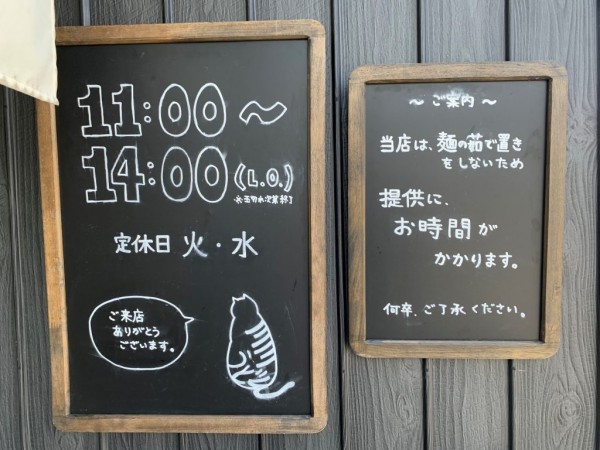 11:00〜
14:00(L.O.)
※玉切れ次第終了
定休日 火・水
ご来店
ありがとう
ございます。
〜 ご案内 〜
当店は、麺の茹で置き
をしないため
提供に、
お時間が
かかります。
何卒、ご了承ください。